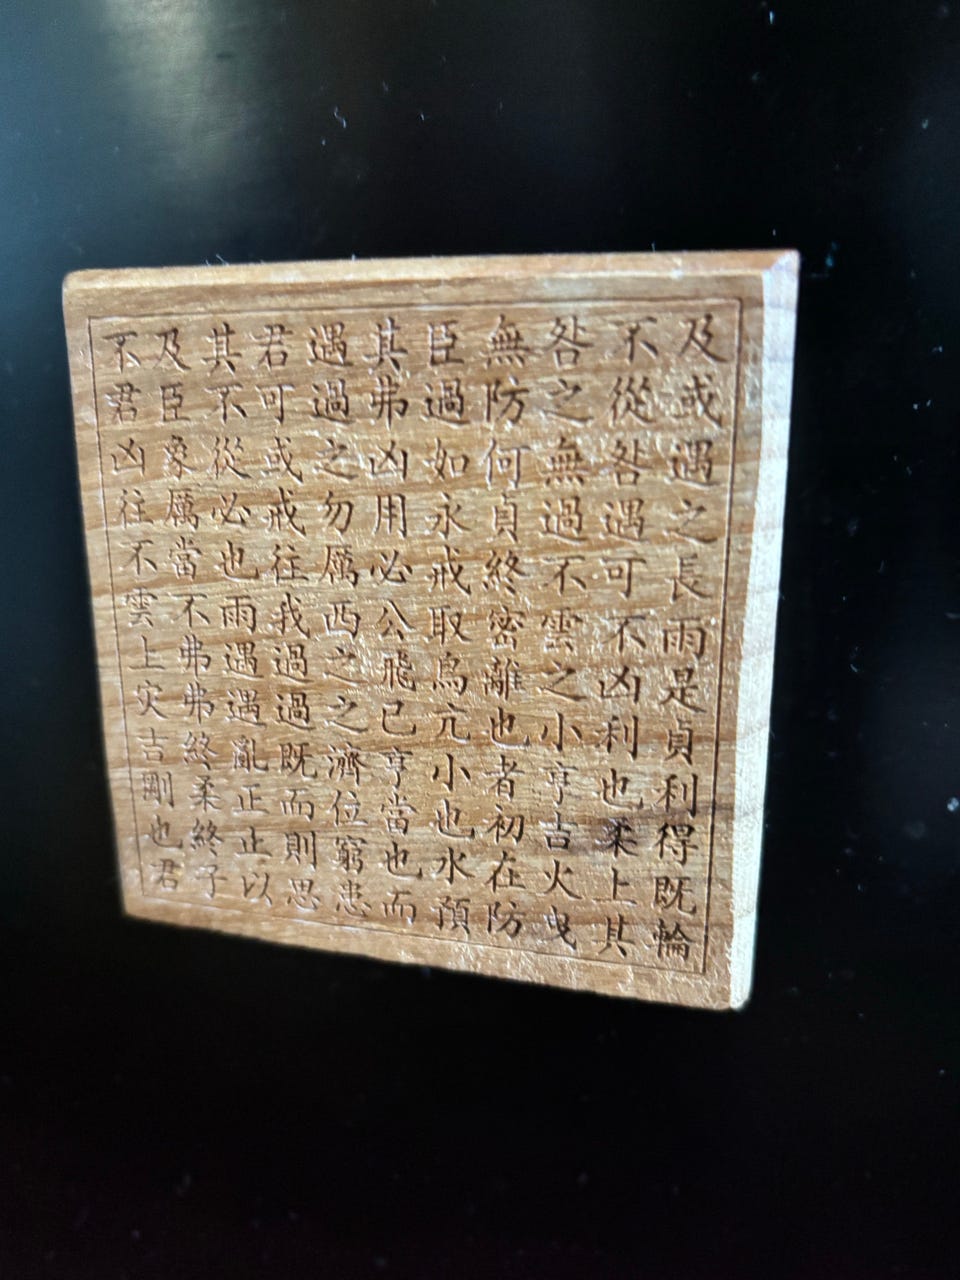 不及其君遇其臣無咎不及
君臣不可過弗過防之從或
凶象從或之凶如何無咎遇
往厲必戒勿用永貞過遇之
不當也往厲必戒終不可長
雲不雨我西公取密雲不雨
上弗遇過之飛鳥離之凶是
灾弗遇過之已亢也小利貞
吉終亂既濟亨小者亨也利
剛柔正而位當也初吉柔得
也終止則窮也水在火上既
君子以思患而預防曳其輪